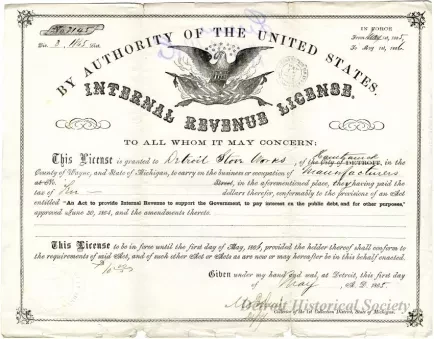 No. 7145
Div. 3
IN FORCE
From May 1st, 1865,
To May 1st, 1866.
BY AUTHORITY OF THE UNITED STATES.
INTERNAL REVENUE LICENSE.
TO ALL WHOM IT MAY CONCERN:
This License is granted to Detroit Stove Works, of the City of DETROIT, in the
Hamtramck
County of Wayne, and State of Michigan, to carry on the business or occupation of Manufacturers
at No. Street, in the aforementioned place, they having paid the
tax of Ten dollars therefor, conformably to the provisions of an Act
entitled "An Act to provide Internal Revenue to support the Government, to pay interest on the public debt, and for other purposes,"
approved June 30, 1864, and the amendments thereto.
This License to be in force until the first day of May, 1866, provided the holder thereof shall conform to the
requirements of said Act, and of such other Act or Acts as are now or may hereafter be in this behalf enacted.
Given under my hand and seal, at Detroit, this first day
of May A. D. 1865.
Collector of the 1st Collection District, State of Michigan.
Detroit Historical Society